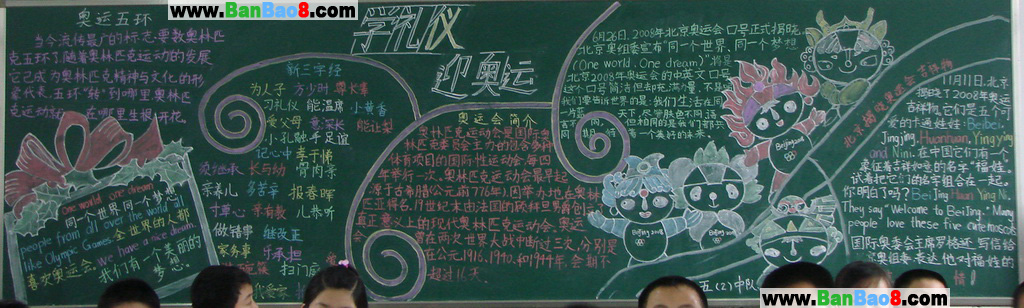 www.BanBao8.com
www.BanBao8.com
奥运五环
当今流传最广的标志，要数奥林匹
克五环了，随着奥林匹克运动的发展
它已成为奥林匹克精神与文化的形
象代表，五环"转"到哪里，奥林匹
克运动就在哪里生根开花。
学礼仪
迎奥运
新三字经
为人子 方少时 尊长辈
习礼仪 能温席 小黄香
爱父母 意深长 能让梨
小孔融 手足谊
记心中 孝于悌
须继承 长与幼 骨肉亲
亲养儿 多苦辛 报春晖
寸草心 亲有教 儿恭听
做错事 继改正
家务事
扫门庭
one world one dream
同一个世界 同一个梦想
people from all over the world all
like Olympic Games 全世界的人都
喜欢奥运会. we have a nice dream.
我们有一个美丽的
梦想!
奥运会简介
奥林匹克运动会是国际奥
林匹克委员会主办的包含多种
体育项目的国际性运动会，每四
年举行一次。奥林匹克运动会最早起
源于古希腊(公元前776年)，因举办地在奥林
匹亚得名。19世纪末由法国的顾拜旦男爵创立
真正意义上的现代奥林匹克运动会。奥运
会 在两次世界大战中断过三次，分别是
在公元1916、1940、和1944年，会期不
超过16天
6月26日，2008年北京奥运会口号正式揭晓
北京奥组委宣布"同一个世界，同一个梦想
(One world. One dream)"将是
北京2008年奥运会的中英文口号
这个口号简洁但却充满力量，不是
我们要告诉世界的是：我们生活在同
一片蓝天下，也许肤色不同 语言
不同 但相同的是我们都共
同期待着一个美好的未来。
北京揭晓奥运会吉祥物
11月11日，北京
揭晓了2008年奥运
吉祥物，它们是五个可
爱的卡通娃娃：Beibei,
Jingjing, Huanhuan, Yingying
and Nini. 在中国它们有一
更富吉祥如意的名字"福娃"。
试着把它们的名字组合在一起.
你明白了吗? BeiJing Huan Ying Ni.
They say "Welcome to BeiJing." Many
people love these five cute mascots
国际奥委会主席罗格还写信给
奥组委表达他对福娃的
情!
Beijing 2008
Beijing 2008
Beijing 2008
五(2)中队
www.BanBao8.com
www.BanBao8.com